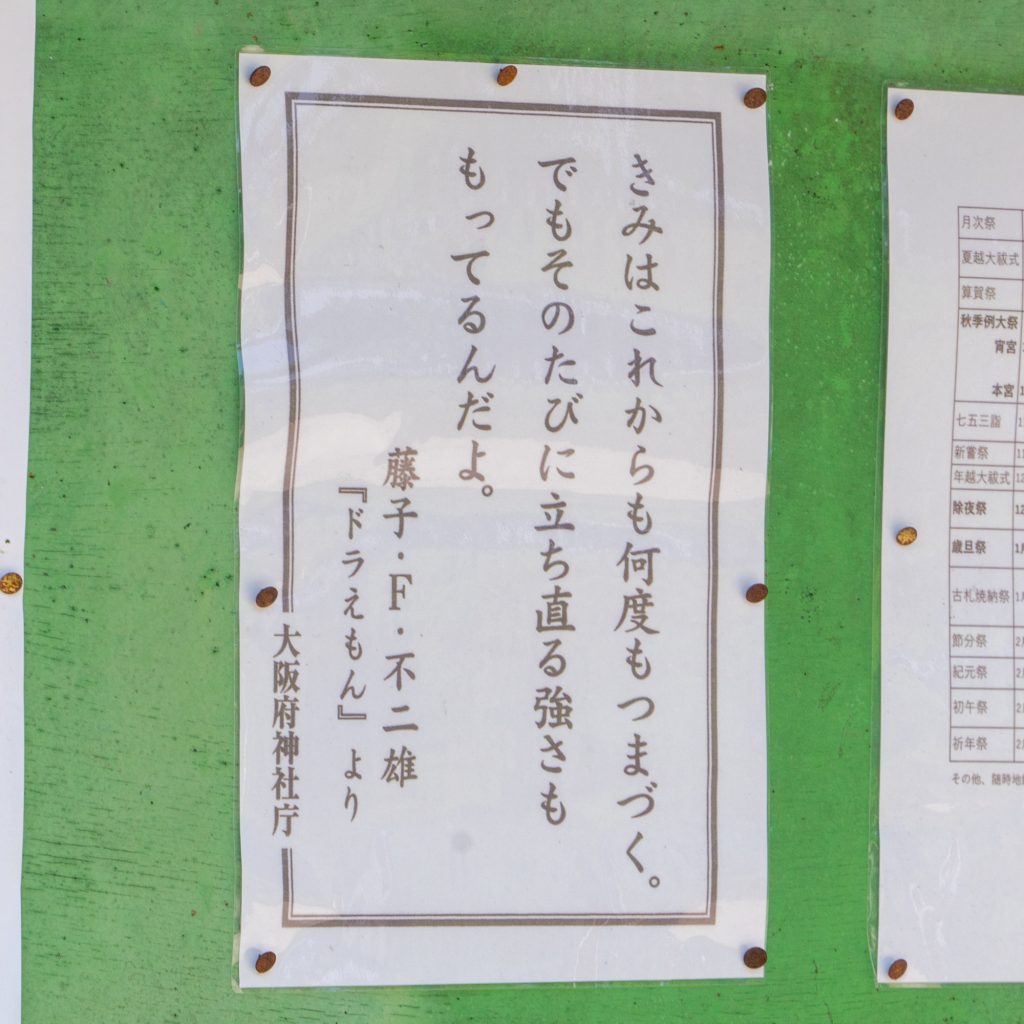 きみはこれからも何度もつまづく。
でもそのたびに立ち直る強さも
もってるんだよ。
藤子・F・不二雄
『ドラえもん』より
大阪府神社庁
月次祭
夏越大祓式
算賀祭
秋季例大祭
宵宮
本宮
七五三詣
新嘗祭
年越大祓式
除夜祭
歳旦祭
古札焼納祭
節分祭
紀元祭
初午祭
祈年祭
その他、随時地